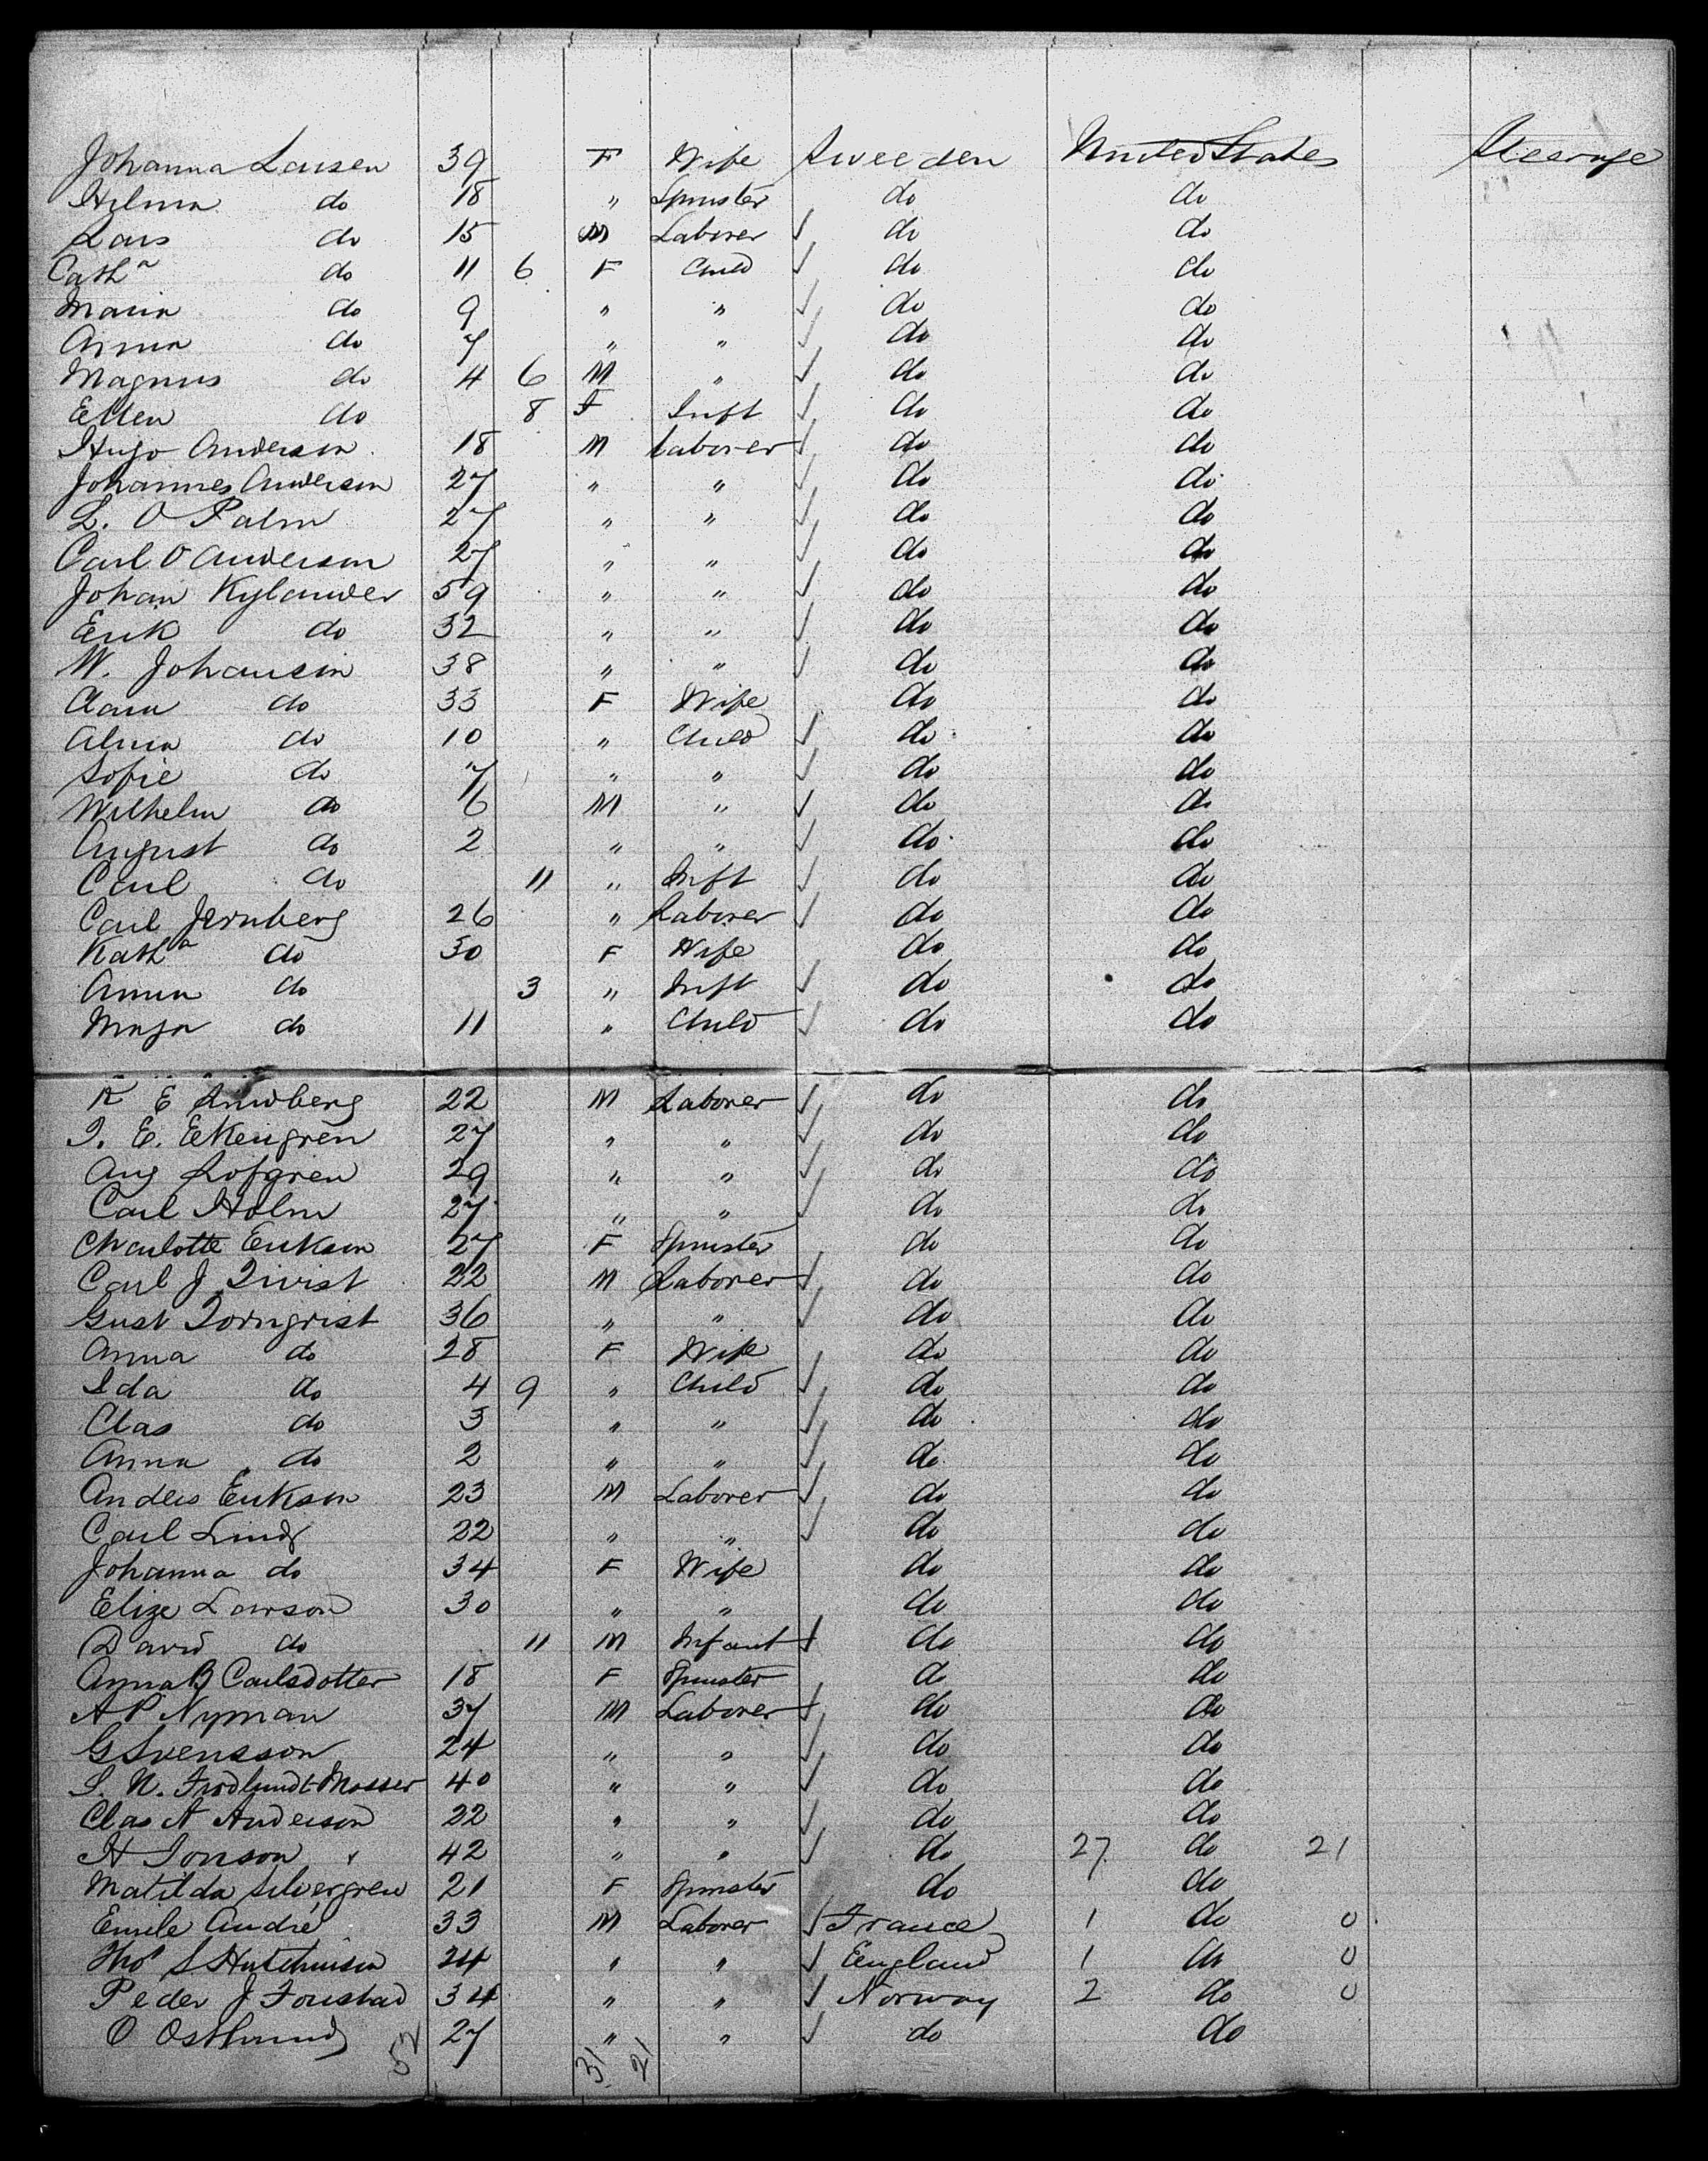 Johanna Larsen 39 F Wife Sweeden United States Steerage
Hilma do 18 " Spinster do do
Lars do 15 M Laborer ✓ do do
Cathª do 11 6 F Child ✓ do do
Maria do 9 " " ✓ do do
Anna do 7 " " ✓ do do
Magnus do 4 6 M " ✓ do do
Ellen do 8 F Inft ✓ do do
Hugo Anderson 18 M Laborer ✓ do do
Johannes Anderson 27 " " ✓ do do
L. O Palm 27 " " ✓ do do
Carl O Anderson 27 " " ✓ do do
Johan Kylander 59 " " ✓ do do
Erik do 32 " " ✓ do do
W. Johansin 38 " " ✓ do do
Clara do 33 F Wife do do
Alma do 10 " Child ✓ do do
Sofie do 7 " " ✓ do do
Wilhelm do 6 M " ✓ do do
August do 2 " " ✓ do do
Carl do 11 " Inft ✓ do do
Carl Jernberg 26 " Laborer ✓ do do
Kathª do 30 F Wife do do
Anna do 3 " Inft ✓ do do
Maja do 11 " Child ✓ do do
K E Lindberg 22 M Laborer ✓ do do
I. E. Ekengren 27 " " ✓ do do
Aug Lofgren 29 " " ✓ do do
Carl Holm 27 " " ✓ do do
Charlotte Erikson 27 F Spinster do do
Carl J Qvist 22 M Laborer ✓ do do
Gust Tornqvist 36 " " ✓ do do
Anna do 28 F Wife do do
Ida do 4 9 " Child ✓ do do
Clas do 3 " " ✓ do do
Anna do 2 " " ✓ do do
Anders Erikson 23 M Laborer ✓ do do
Carl Lind 22 " " ✓ do do
Johanna do 34 F Wife do do
Elize Larson 30 " " do do
David do 11 M Infant ✓ do do
Anna B Carlsdotter 18 F Spinster do do
A P Nyman 37 M Laborer ✓ do do
G Svensson 24 " " ✓ do do
S. N. 40 " " ✓ do do
Clas A Anderson 22 " " ✓ do do
H Jonson 42 " " ✓ do 27 do 21
Matilda Silvergren 21 F Spinster do do
Emile André 33 M Laborer ✓ France 1 do 0
Thos S Hutchinson 24 " " ✓ Eengland 1 do 0
Peder J 34 " " ✓ Norway 2 do 0
O Ostlund 27 " " ✓ do do
52 31 21